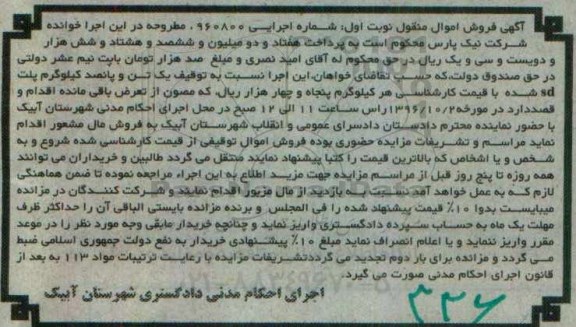 آگهی فروش اموال منقول نوبت اول: شماره اجرایی ۹۶۰۸۰۰ . مطروحه در این اجرا خوانده
شرکت نیک پارس محکوم است به پرداخت هفتاد و دو میلیون و ششصد و هشتاد و شش هزار
و دویست و سی و یک ریال در حق محکوم له آقای امید نصری و مبلغ صد هزار تومان بابت نیم عشر دولتی
در حق صندوق دولت،که حسب تقاضای خواهان،این اجرا نسبت به توقیف یک تن و پانصد کیلوگرم پلت
sd شده با قیمت کارشناسی هر کیلوگرم پنجاه و چهار هزار ریال، که مصون از تعرض باقی مانده اقدام و
قصددارد در مورخه ۱۳۹۶/۱۰/۲ راس ساعت ۱۱ الی ۱۲ صبح در محل اجرای احکام مدنی شهرستان آبیک
با حضور نماینده محترم دادستان دادسرای عمومی و انقلاب شهرستان آبیک به فروش مال مشعور اقدام
نماید مراسم و تشریفات مزایده حضوری بوده فروش اموال توقیفی از قیمت کارشناسی شده شروع و به
شخص و یا اشخاص که بالاترین قیمت را کتبا پیشنهاد نمایند منتقل می گردد طالبین و خریداران می توانند
همه روزه تا پنج روز قبل از مراسم مزایده جهت مزید اطلاع به این اجراء مراجعه نموده تا ضمن هماهنگی
لازم که به عمل خواهد آمد نسبت به بازدید از مال مزبور اقدام نمایند و شرکت کنندگان در مزایده
میبایست بدوا ۱۰٪ قیمت پیشنهاد شده را فی المجلس و برنده مزایده بایستی الباقی آن را حداکثر ظرف
مهلت یک ماه به حساب سپرده دادگستری واریز نماید و چنانچه خریدار مابقی وجه مورد نظر را در موعد
مقرر واریز ننماید و یا اعلام انصراف نماید مبلغ ۱۰٪ پیشنهادی خریدار به نفع دولت جمهوری اسلامی ضبط
می گردد و مزایده برای بار دوم تجدید می گرددتشریفات مزایده با رعایت ترتیبات مواد ۱۱۳ به بعد از
قانون اجرای احکام مدنی صورت می گیرد.
اجرای احکام مدنی دادگستری شهرستان آبیک
۳۳۶